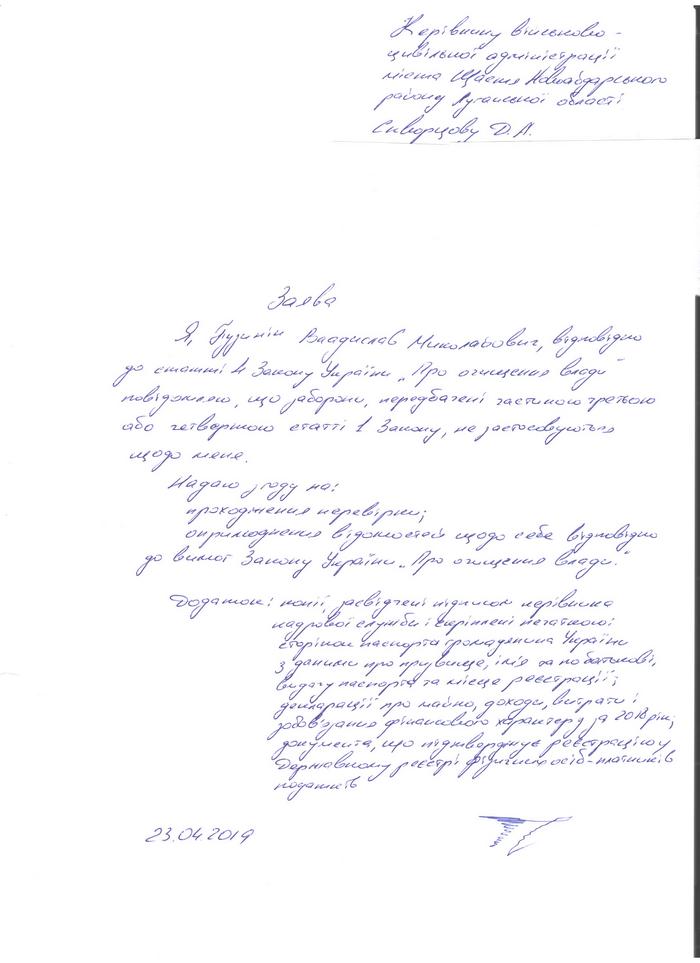 Керівнику військово-
цивільної адміністрації
міста Щастя Новоайдарського
району Луганської області
Скворцову Д.А.
Заява
Я, Пузинін Владислав Миколайович, відповідно
до статті 4 Закону України „Про очищення влади"
повідомляю, що заборони, передбачені частиною третьою
або четвертою статті 1 Закону, не застосовуються
щодо мене.
Надаю згоду на:
проходження перевірки;
оприлюднення відомостей щодо себе відповідно
до вимог Закону України „Про очищення влади."
Додаток: копії, засвідчені підписом керівника
кадрової служби і скріплені печаткою:
сторінок паспорта громадянина України
з даними про прізвище, ім'я та по батькові,
видачу паспорта та місце реєстрації;
декларації про майно, доходи, витрати і
зобов'язання фінансового характеру за 2018 рік;
документа, що підтверджує реєстрацію у
Державному реєстрі фізичних осіб-платників
податків
23.04.2019